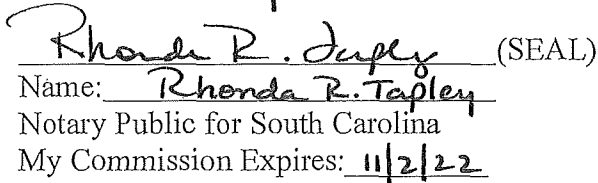 Rhonda R. Tapley (SEAL)
Name: Rhonda R. Tapley
Notary Public for South Carolina
My Commission Expires: 11/2/22